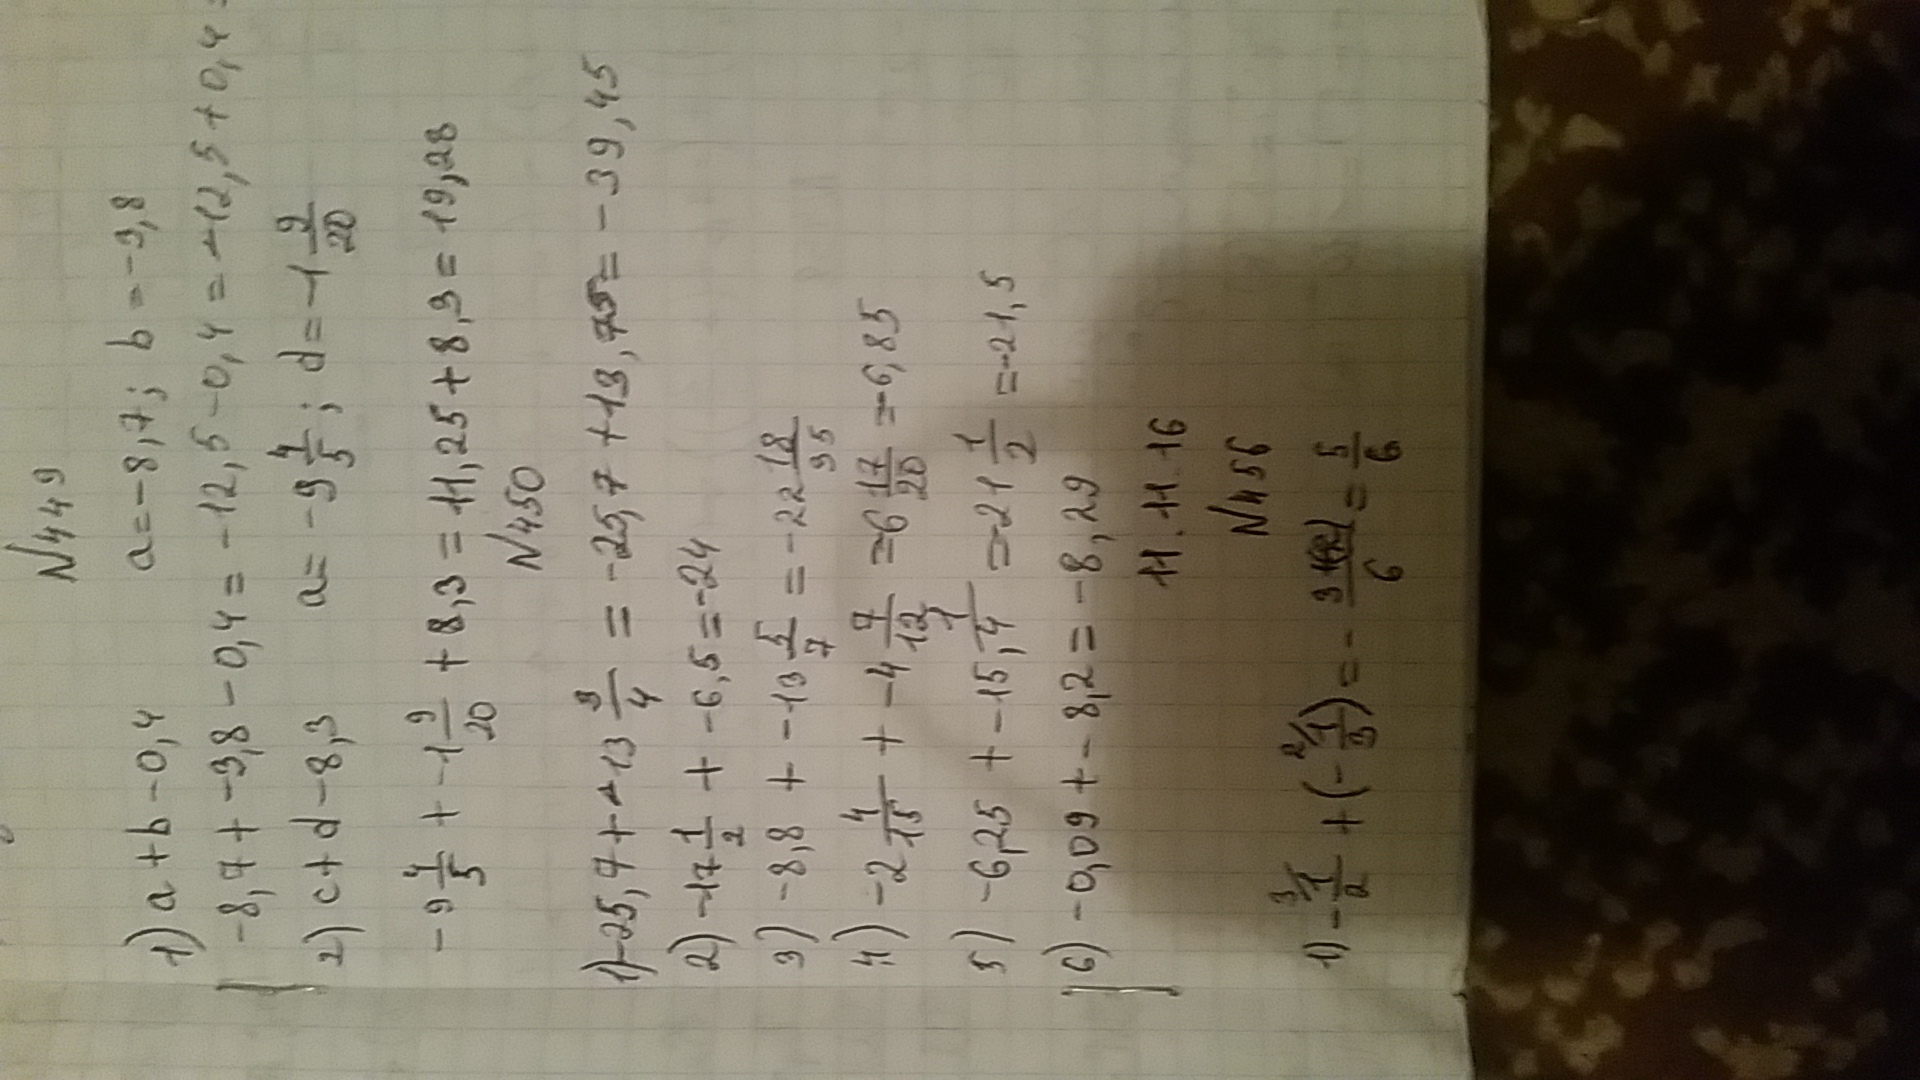 N449
1) a+b-0,4 a=-8,7; b=-3,8
-8,7+-3,8-0,4=-12,5-0,4=-12,5+0,4=
2) c+d-8,3 a=-9 4/5; d=-1 9/20
-9 4/5 + -1 9/20 + 8,3 = 11,25+8,3=19,28
N450
1) -25,7+-13 3/4 = -25,7+13,75=-39,45
2) -17 1/2 + -6,5=-24
3) -8,8 + -13 5/7 = -22 18/35
4) -2 4/15 + -4 7/12 =6 17/20 =6,85
5) -6,25 + -15,1/4 =-21 1/2 =-21,5
6) -0,09+-8,2=-8,29
11.11.16
N456
1) -1/2 + (-1/3)=- =5/6